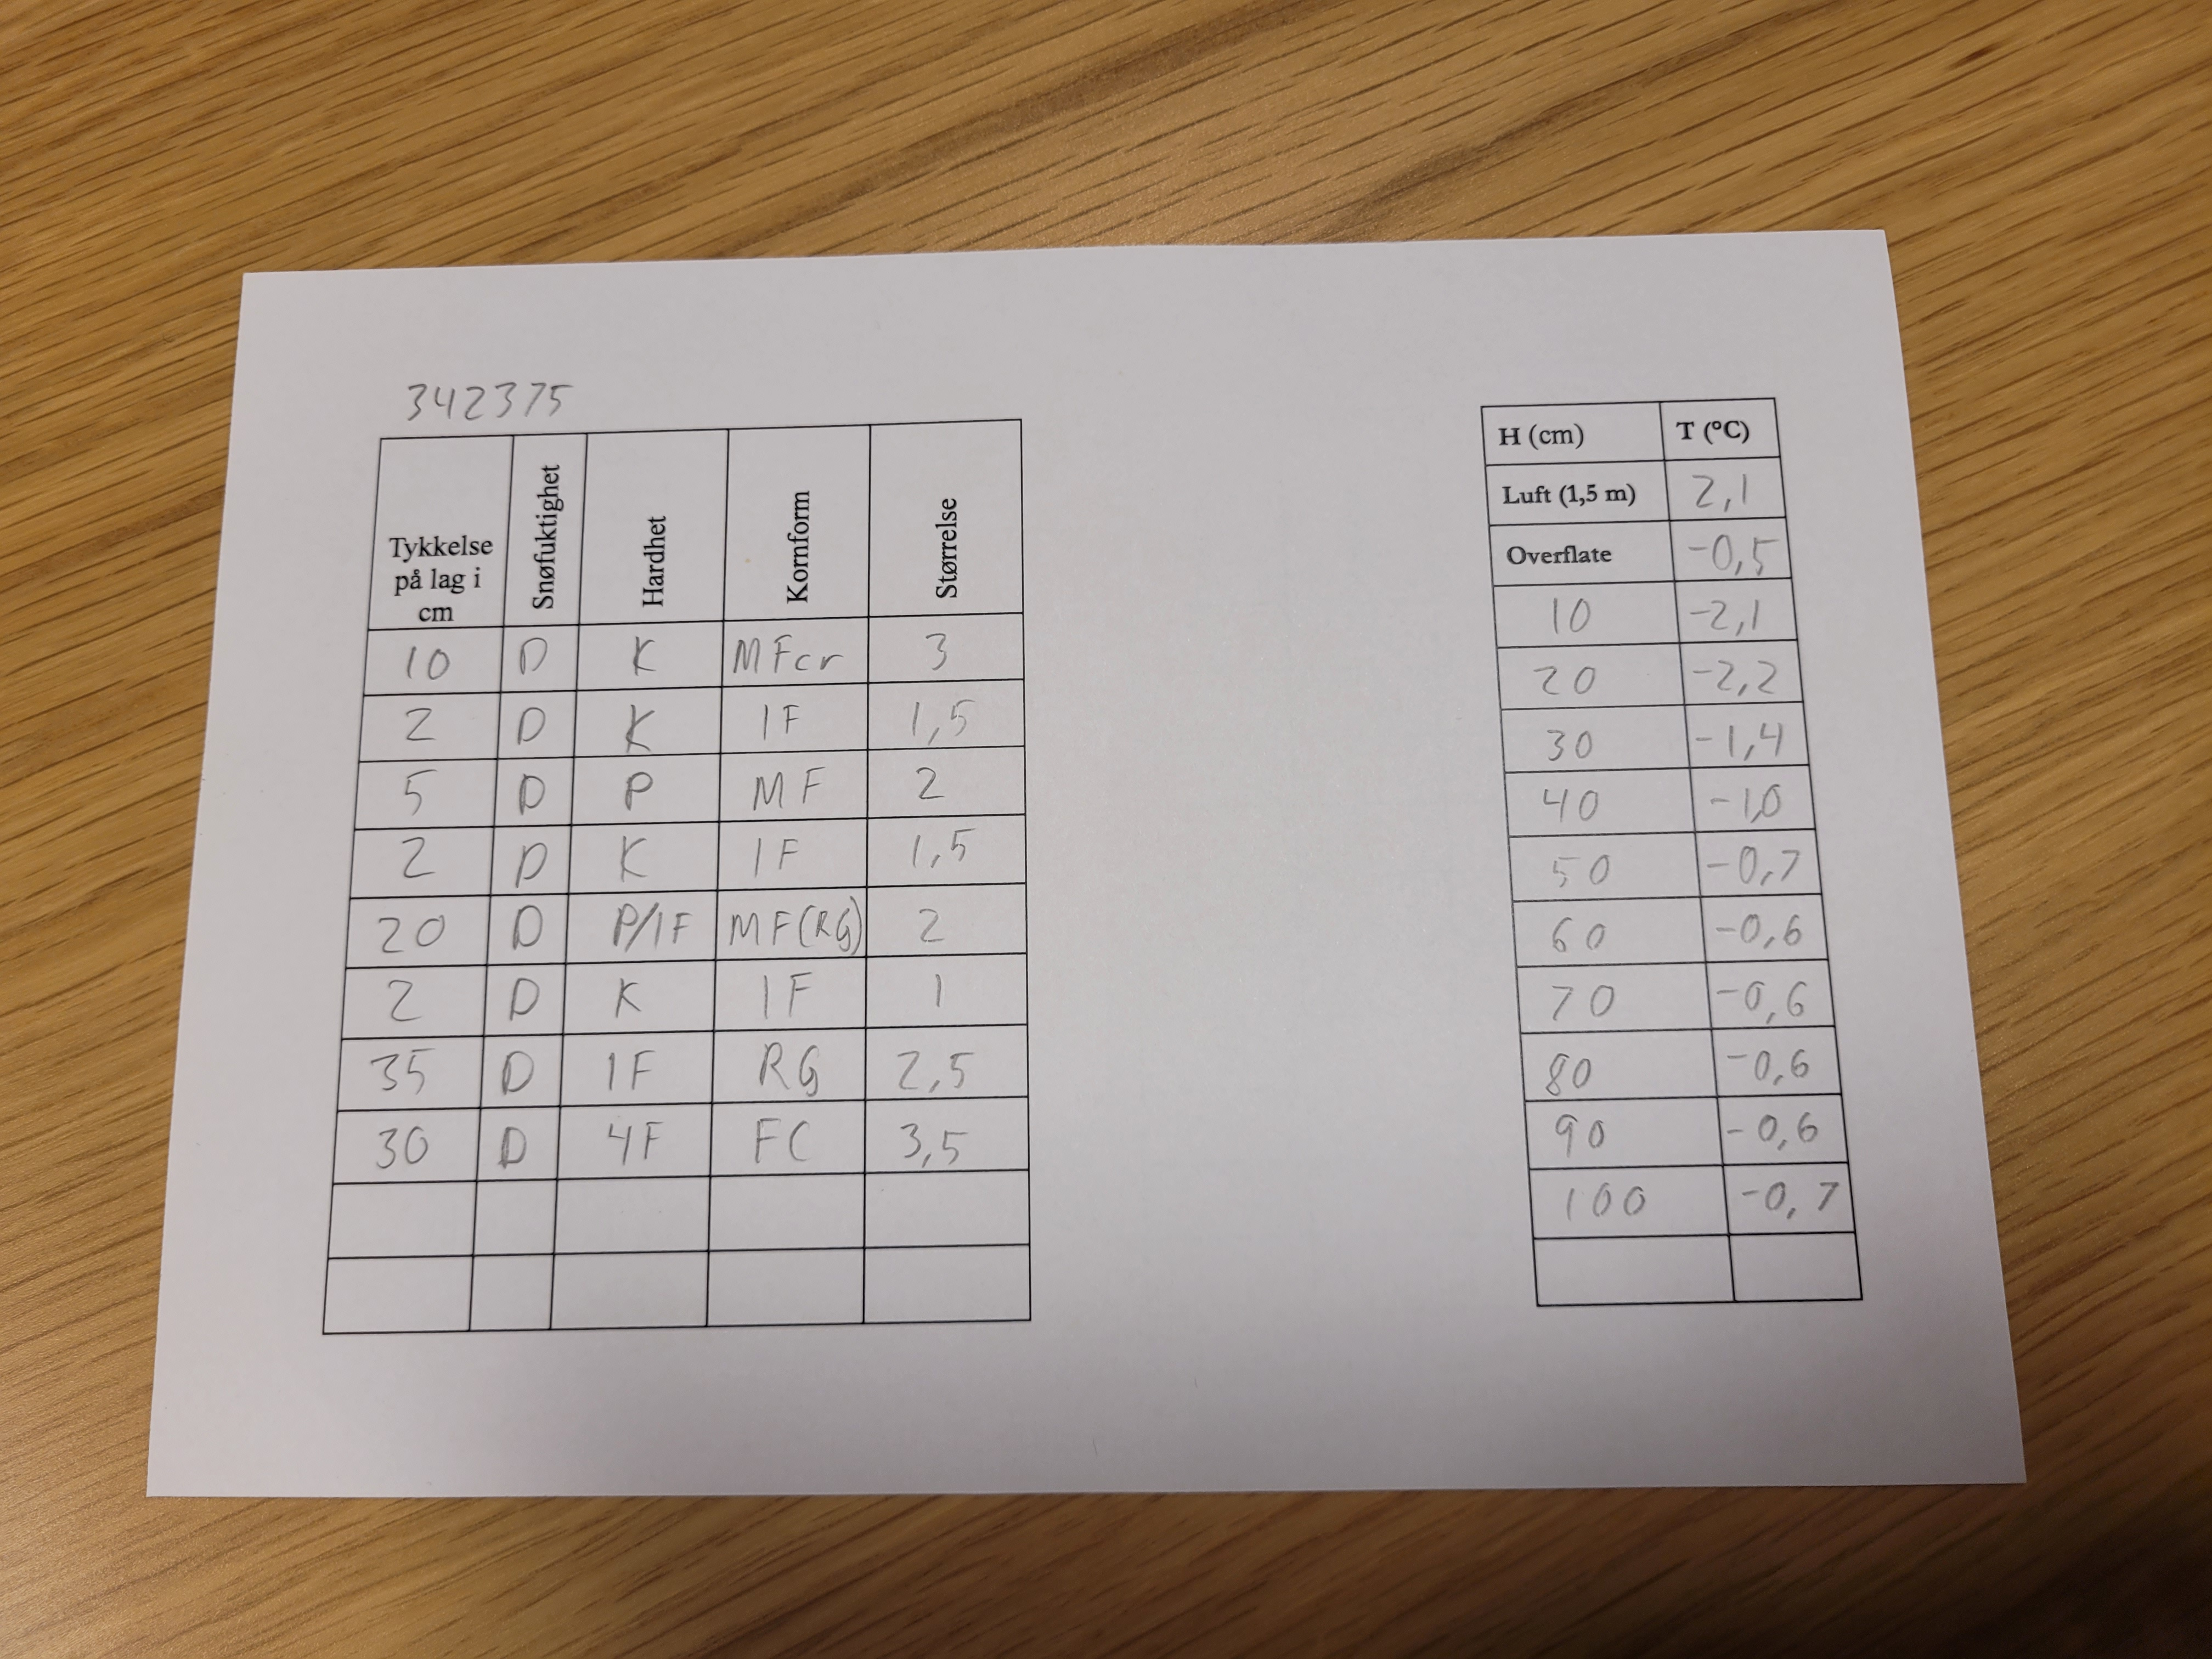 342375
Tykkelse på lag i cm Snøfuktighet Hardhet Kornform Størrelse
10 D K MFcr 3
2 D K IF 1,5
5 D P MF 2
2 D K IF 1,5
20 D P/1F MF(RG) 2
2 D K IF 1
35 D 1F RG 2,5
30 D 4F FC 3,5
H (cm) T (°C)
Luft (1,5 m) 2,1
Overflate -0,5
10 -2,1
20 -2,2
30 -1,4
40 -1,0
50 -0,7
60 -0,6
70 -0,6
80 -0,6
90 -0,6
100 -0,7